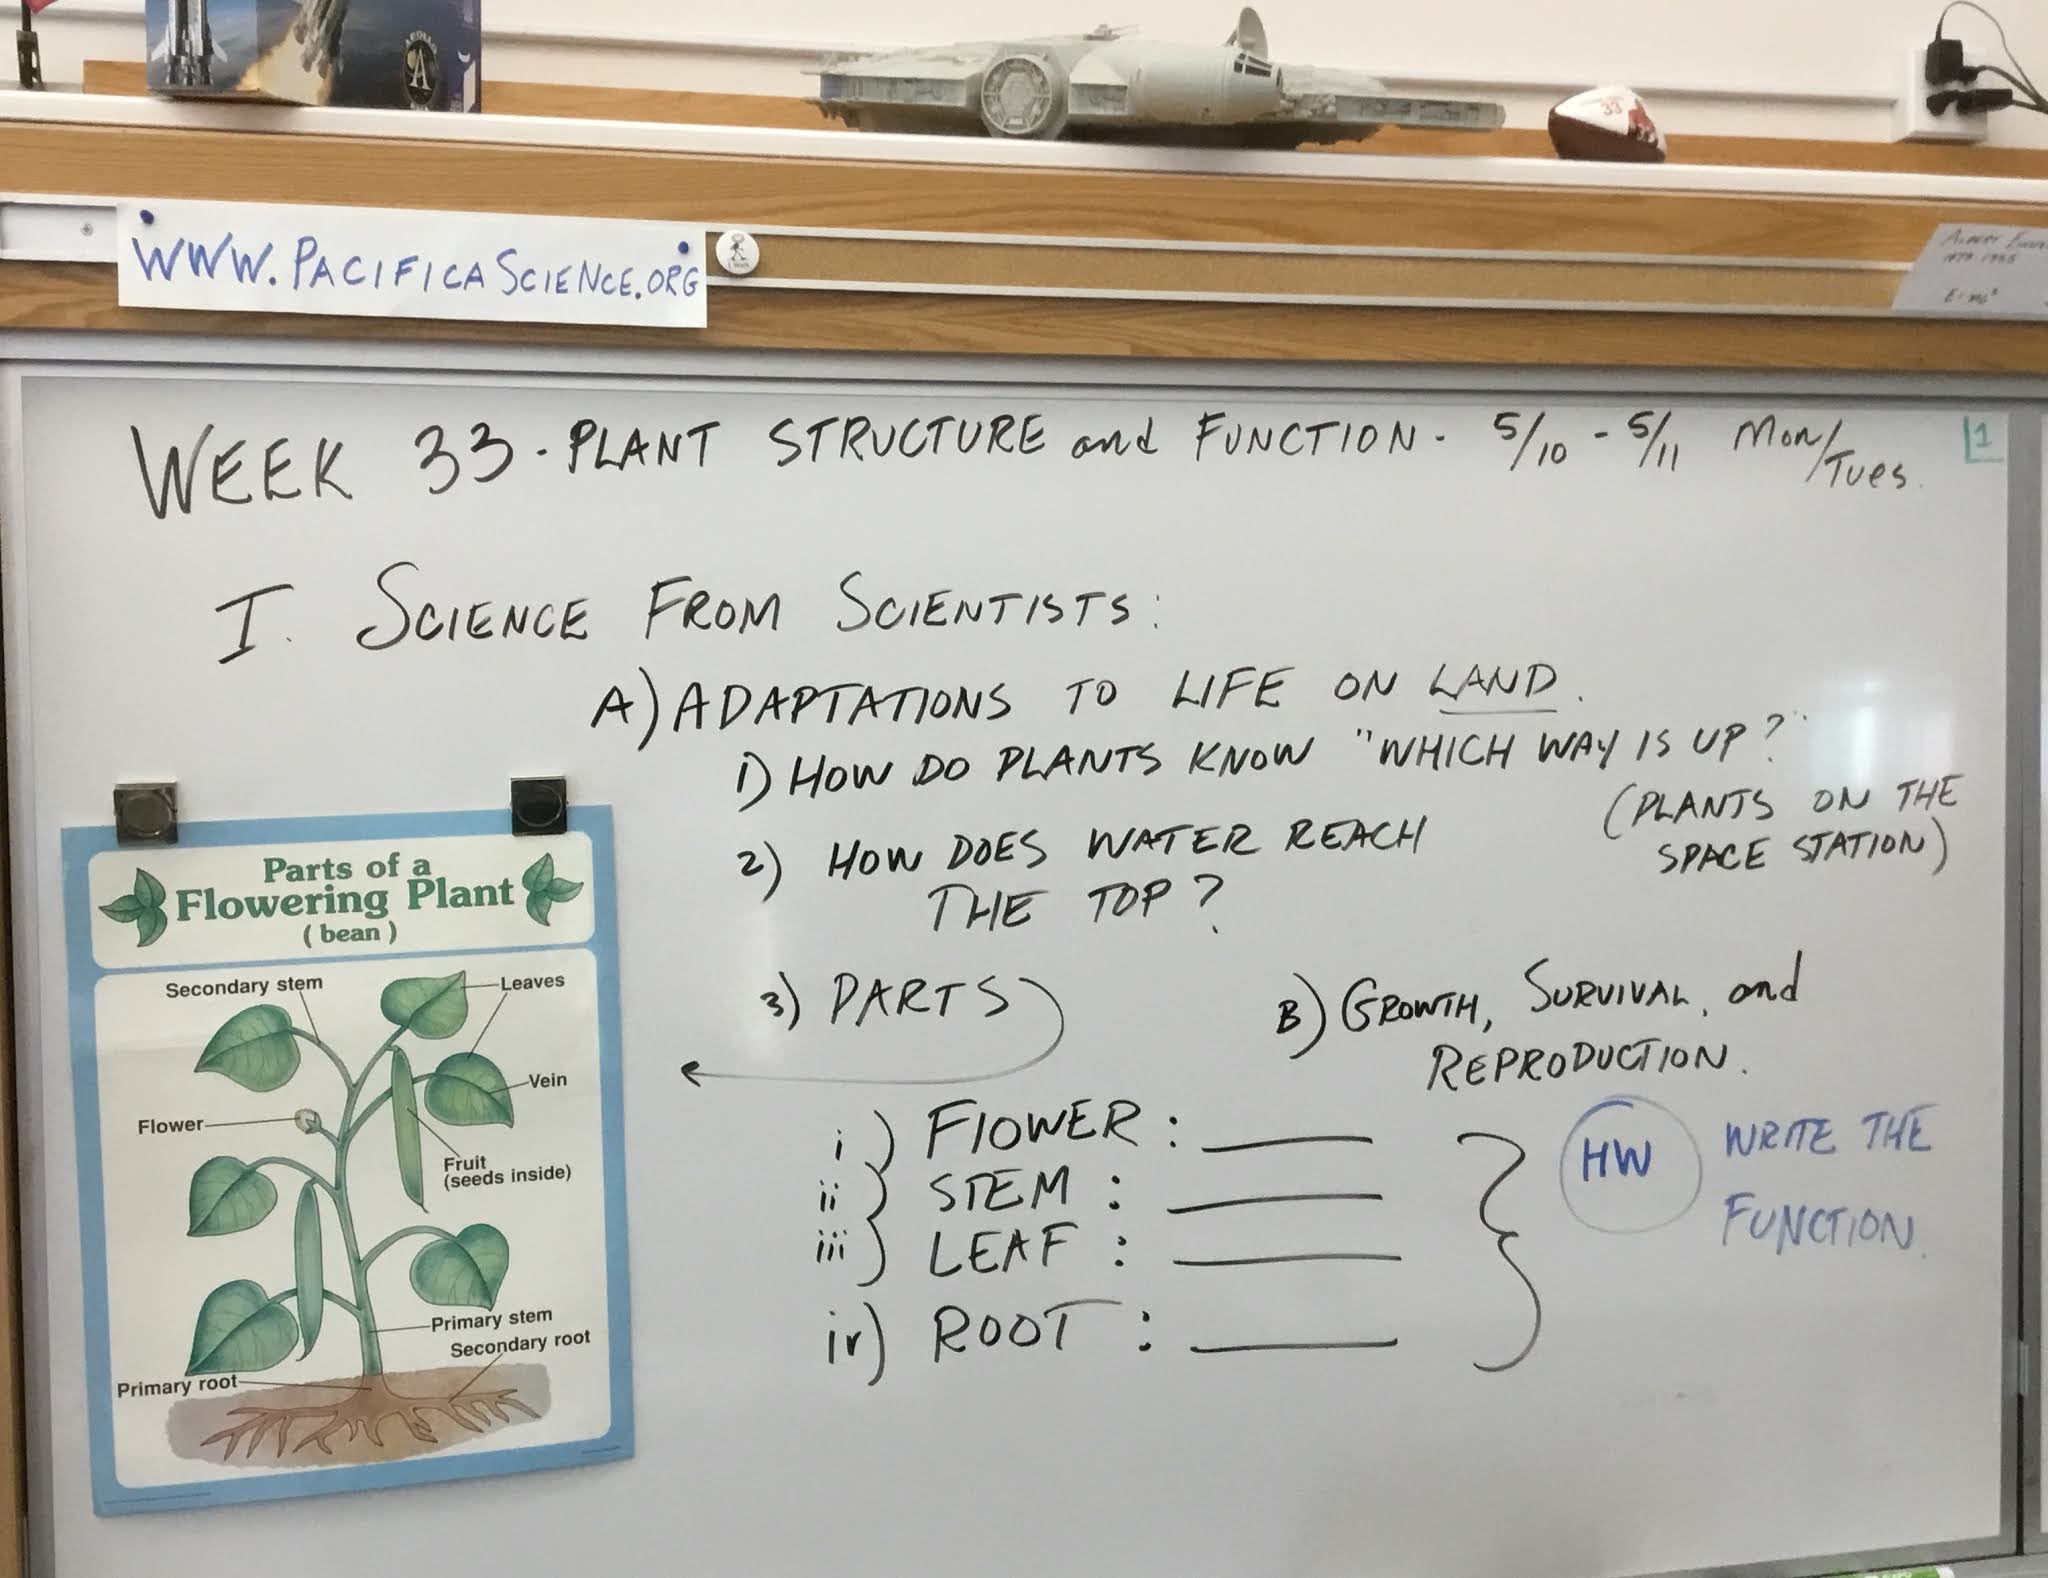 APOLLO
A
33
WWW.PACIFICASCIENCE.ORG
I Walk
1879-1955
E=mc²
WEEK 33 - PLANT STRUCTURE and FUNCTION - 5/10 - 5/11 Mon/Tues.
1
I. SCIENCE FROM SCIENTISTS:
A) ADAPTATIONS TO LIFE ON LAND.
1) HOW DO PLANTS KNOW "WHICH WAY IS UP?"
(PLANTS ON THE
SPACE STATION)
2) HOW DOES WATER REACH
THE TOP?
3) PARTS
B) GROWTH, SURVIVAL, and
REPRODUCTION.
i) FLOWER:
ii) STEM:
iii) LEAF:
iv) ROOT:
HW
WRITE THE
FUNCTION.
Parts of a
Flowering Plant
( bean )
Secondary stem
Leaves
Vein
Flower
Fruit
(seeds inside)
Primary stem
Secondary root
Primary root